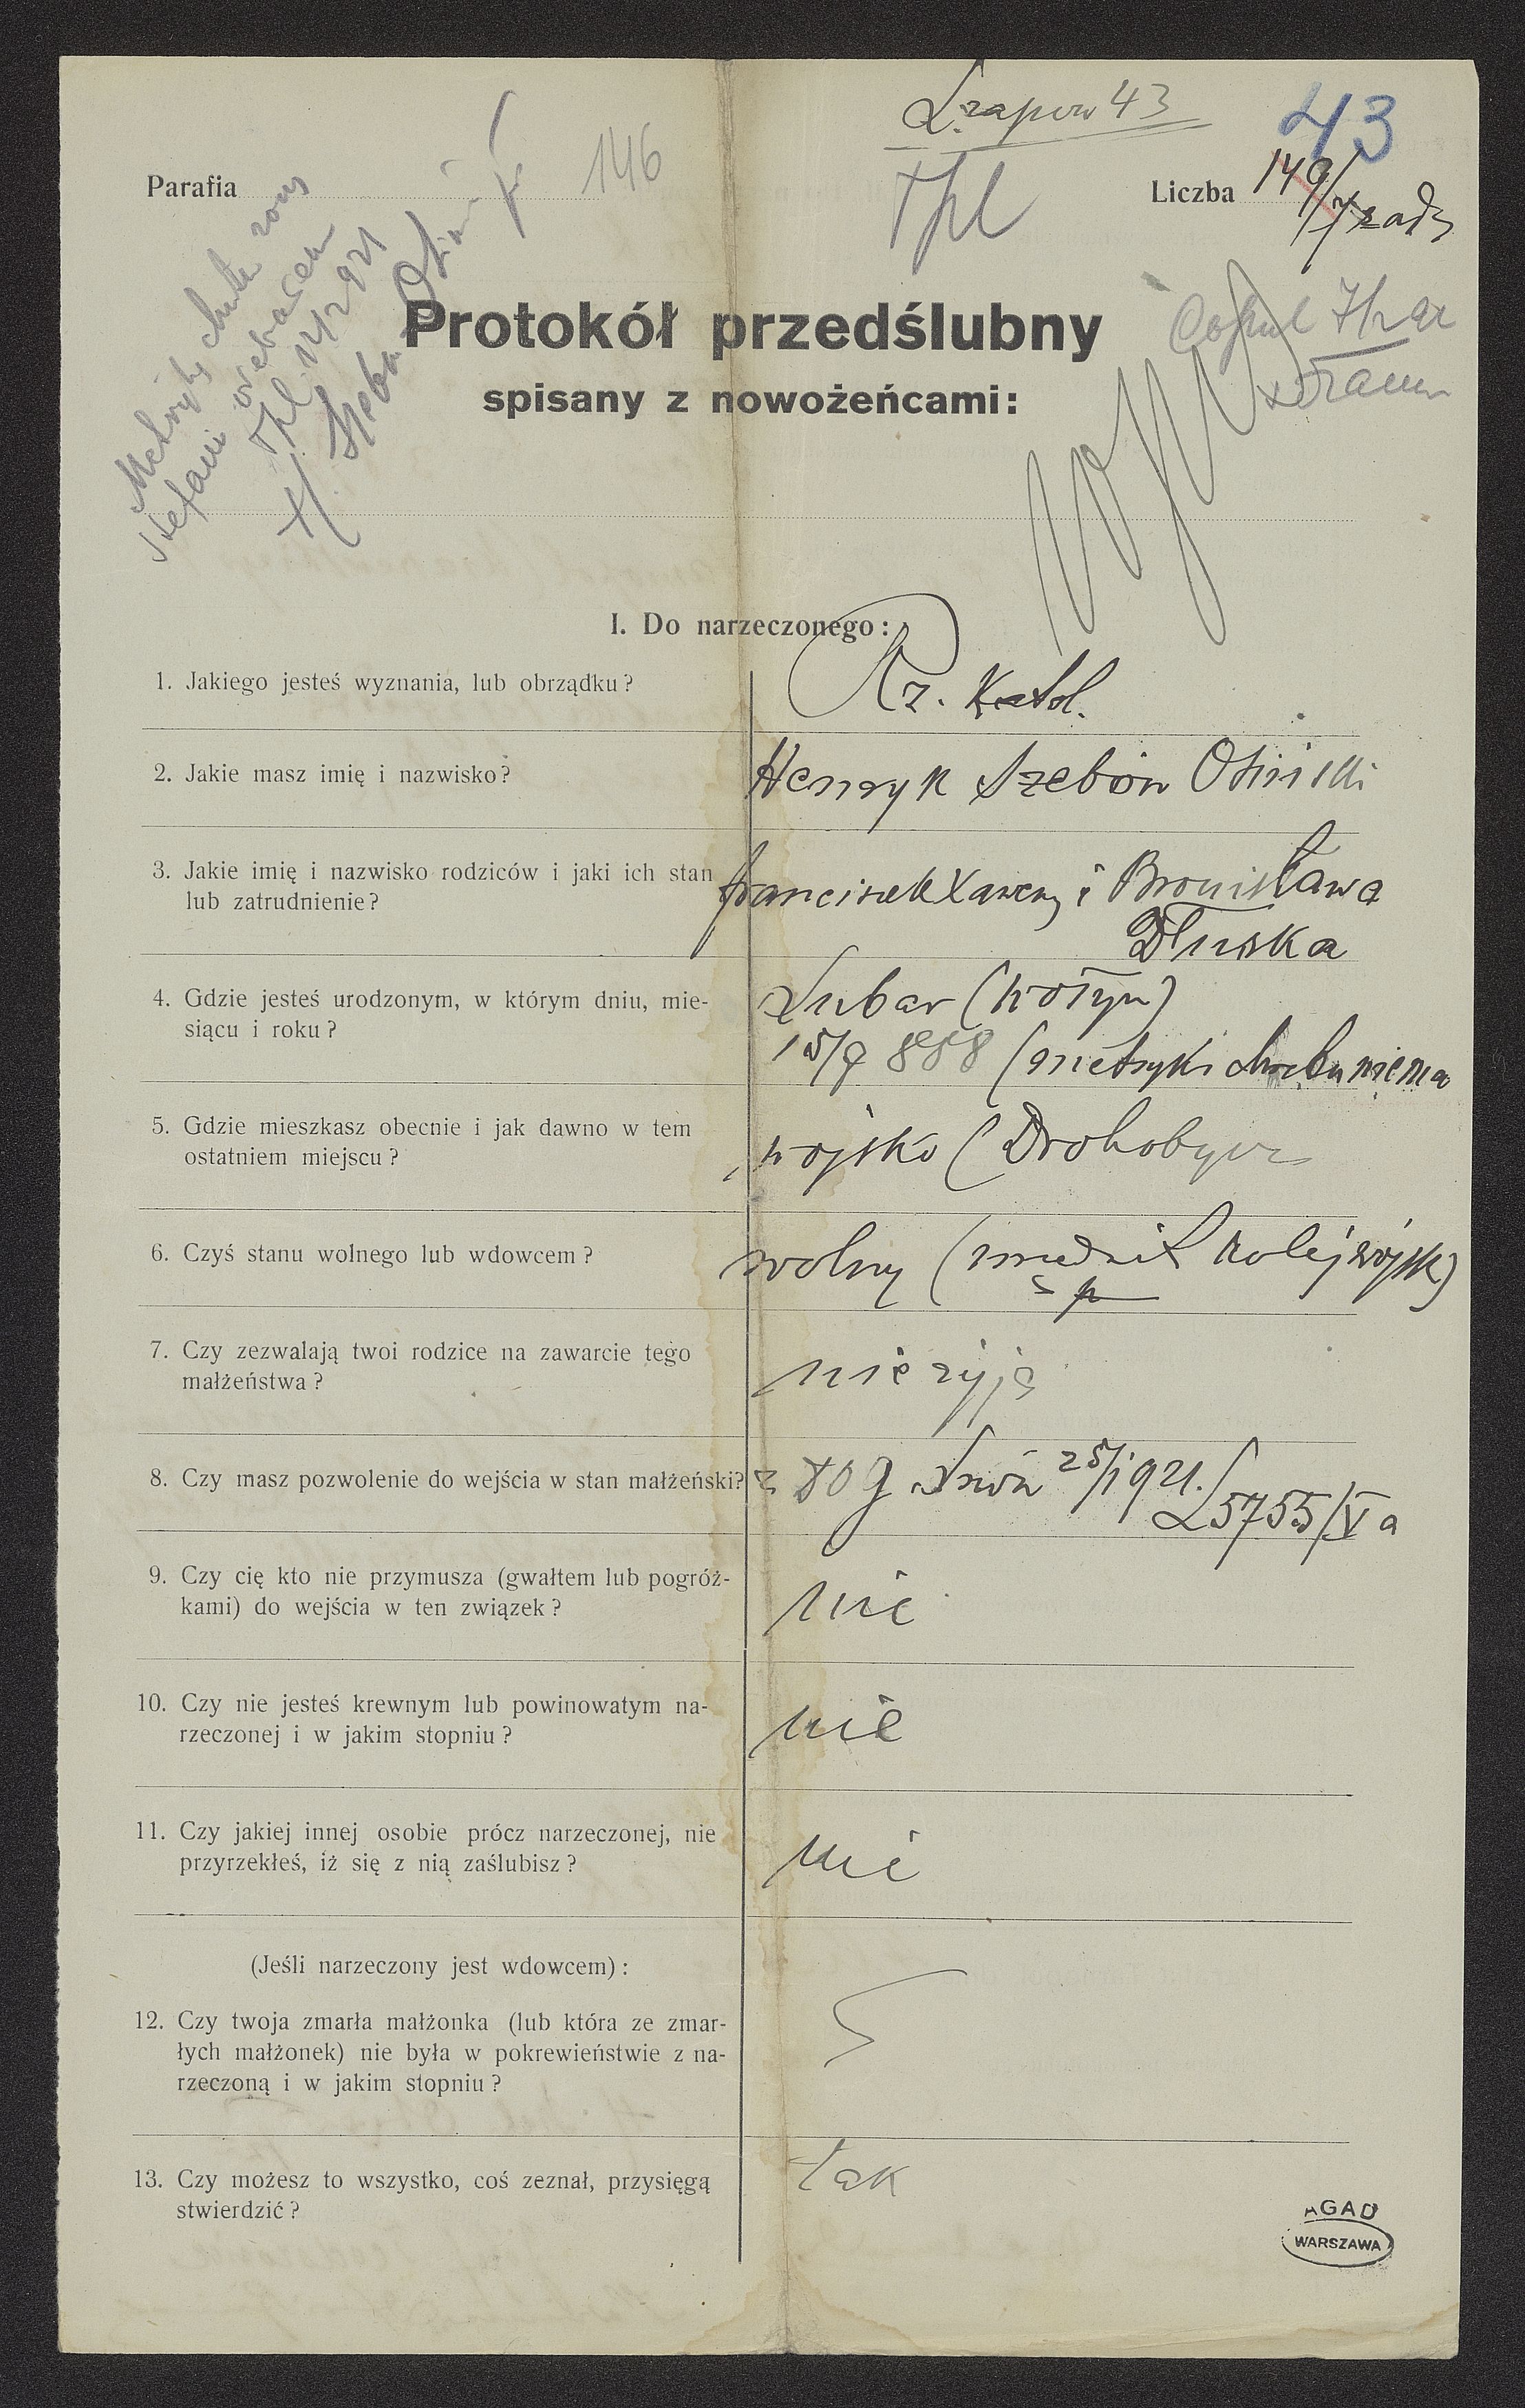 L. zapow 43
43
Parafia
146
Tpl
Liczba 149/
Protokół przedślubny
spisany z nowożeńcami:
12/2 921
I. Do narzeczonego:
1. Jakiego jesteś wyznania, lub obrządku?
Rz. Katol.
2. Jakie masz imię i nazwisko?
Henryk Szebion Osiński
3. Jakie imię i nazwisko rodziców i jaki ich stan
lub zatrudnienie?
Franciszek Xawery i Bronisława
Dłuska
4. Gdzie jesteś urodzonym, w którym dniu, mie-
siącu i roku?
Lubar (Wołyń)
15/9 888 (metryki chrztu niema
5. Gdzie mieszkasz obecnie i jak dawno w tem
ostatniem miejscu?
wojsko (Drohobycz
6. Czyś stanu wolnego lub wdowcem?
wolny (
7. Czy zezwalają twoi rodzice na zawarcie tego
małżeństwa?
nie żyją
8. Czy masz pozwolenie do wejścia w stan małżeński?
z DOG Lwów 25/1 921. L 5755/Va
9. Czy cię kto nie przymusza (gwałtem lub pogróż-
kami) do wejścia w ten związek?
nie
10. Czy nie jesteś krewnym lub powinowatym na-
rzeczonej i w jakim stopniu?
nie
11. Czy jakiej innej osobie prócz narzeczonej, nie
przyrzekłeś, iż się z nią zaślubisz?
nie
(Jeśli narzeczony jest wdowcem):
12. Czy twoja zmarła małżonka (lub która ze zmar-
łych małżonek) nie była w pokrewieństwie z na-
rzeczoną i w jakim stopniu?
13. Czy możesz to wszystko, coś zeznał, przysięgą
stwierdzić?
tak
AGAD
WARSZAWA